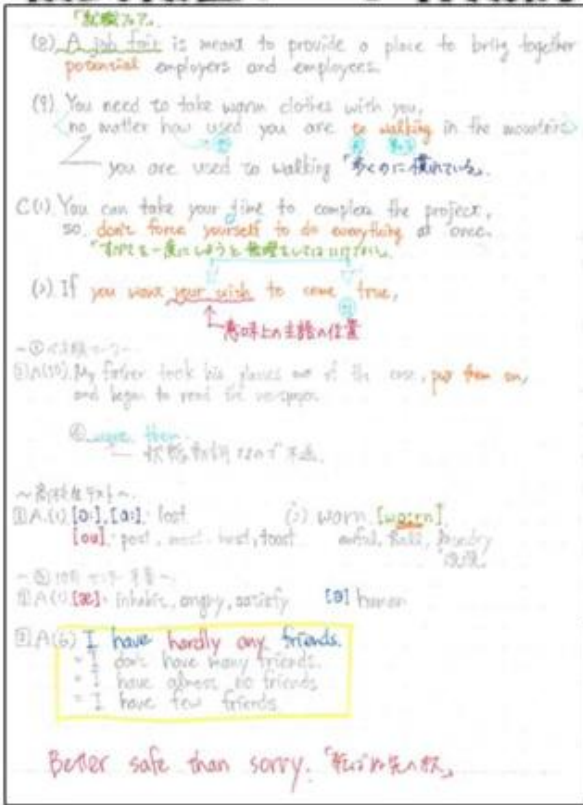 「就職フェア」
(8) A job fair is meant to provide a place to bring together
potential employers and employees.
(9) You need to take warm clothes with you,
no matter how used you are to walking in the mountains
you are used to walking 「歩くのに慣れている」
C(1) You can take your time to complete the project,
so don't force yourself to do everything at once.
「すべてを一度にしようと無理をしてはいけない」
(2) If you want your wish to come true,
意味上の主語の位置
②A(10) My father took his glasses out of the case, put them on,
and began to read the newspaper.
④ wore them
状態動詞なので不適
①A.(1) [ɔː], [ɑː]: lost (2) worn [wɔːrn]
[ou]: post, most, host, toast awful, ball, laundry
洗濯
①A(1) [æ]: inhabit, angry, satisfy [ə] human
②A(6) I have hardly any friends.
= I don't have many friends.
= I have almost no friends
= I have few friends.
Better safe than sorry. 「転ばぬ先の杖」